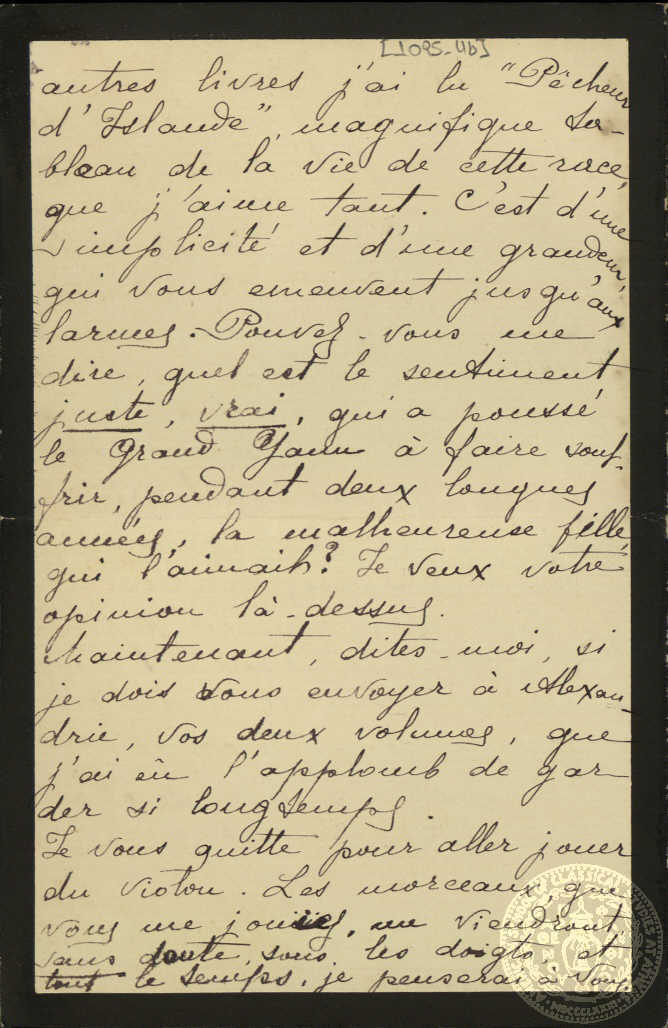 [1095-4b]
autres livres j'ai lu "Pêcheur
d'Islande", magnifique ta-
bleau de la vie de cette race,
que j'aime tant. C'est d'une
simplicité et d'une grandeur,
qui vous emeuvent jusqu'aux
larmes. Pouvez-vous me
dire, quel est le sentiment
juste, vrai, qui a poussé
le Grand Yann à faire souf-
frir, pendant deux longues
années, la malheureuse fille,
qui l'aimait? Je veux votre
opinion là-dessus.
Maintenant, dites-moi, si
je dois vous envoyer à Alexan-
drie, vos deux volumes, que
j'ai eu l'applomb de gar-
der si longtemps.
Je vous quitte pour aller jouer
du violon. Les morceaux, que
vous me jouiez, me viendront,
sans doute, sous les doigts et
tout le temps, je penserai à vous.